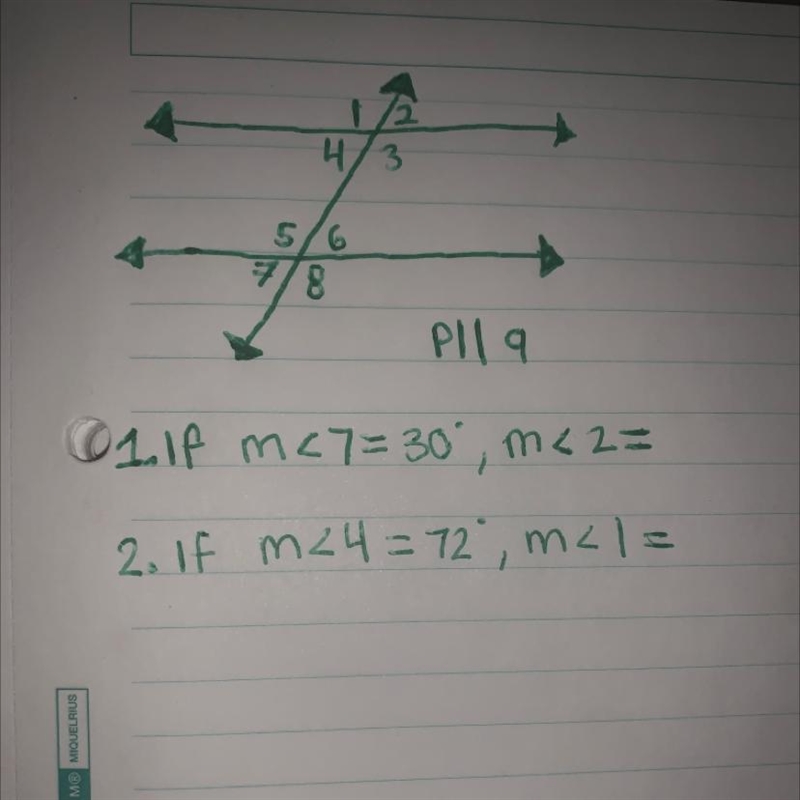 1 2
4 3
5 6
7 8
P||q
1. If m<7=30°, m<2=
2. If m<4=72°, m<1=
M® MIQUELRIUS